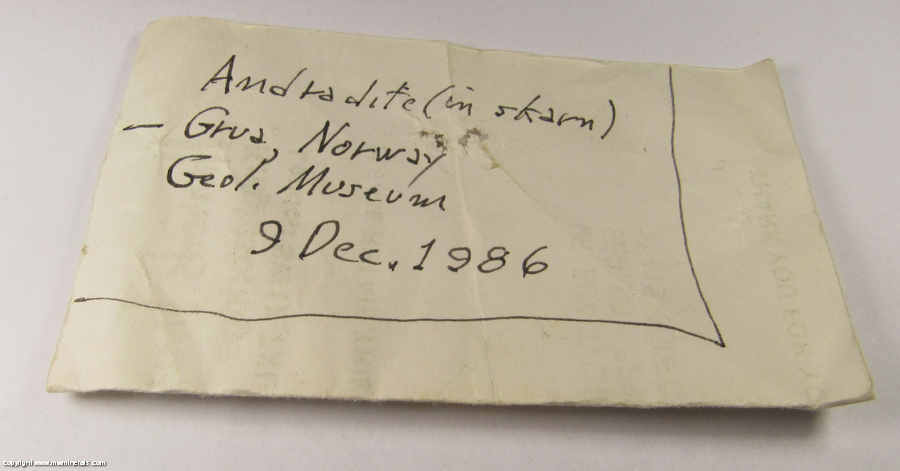 Andradite (in skarn)
— Grua, Norway
Geol. Museum
9 Dec. 1986
THANK YOU FOR
copyright www.mwminerals.com